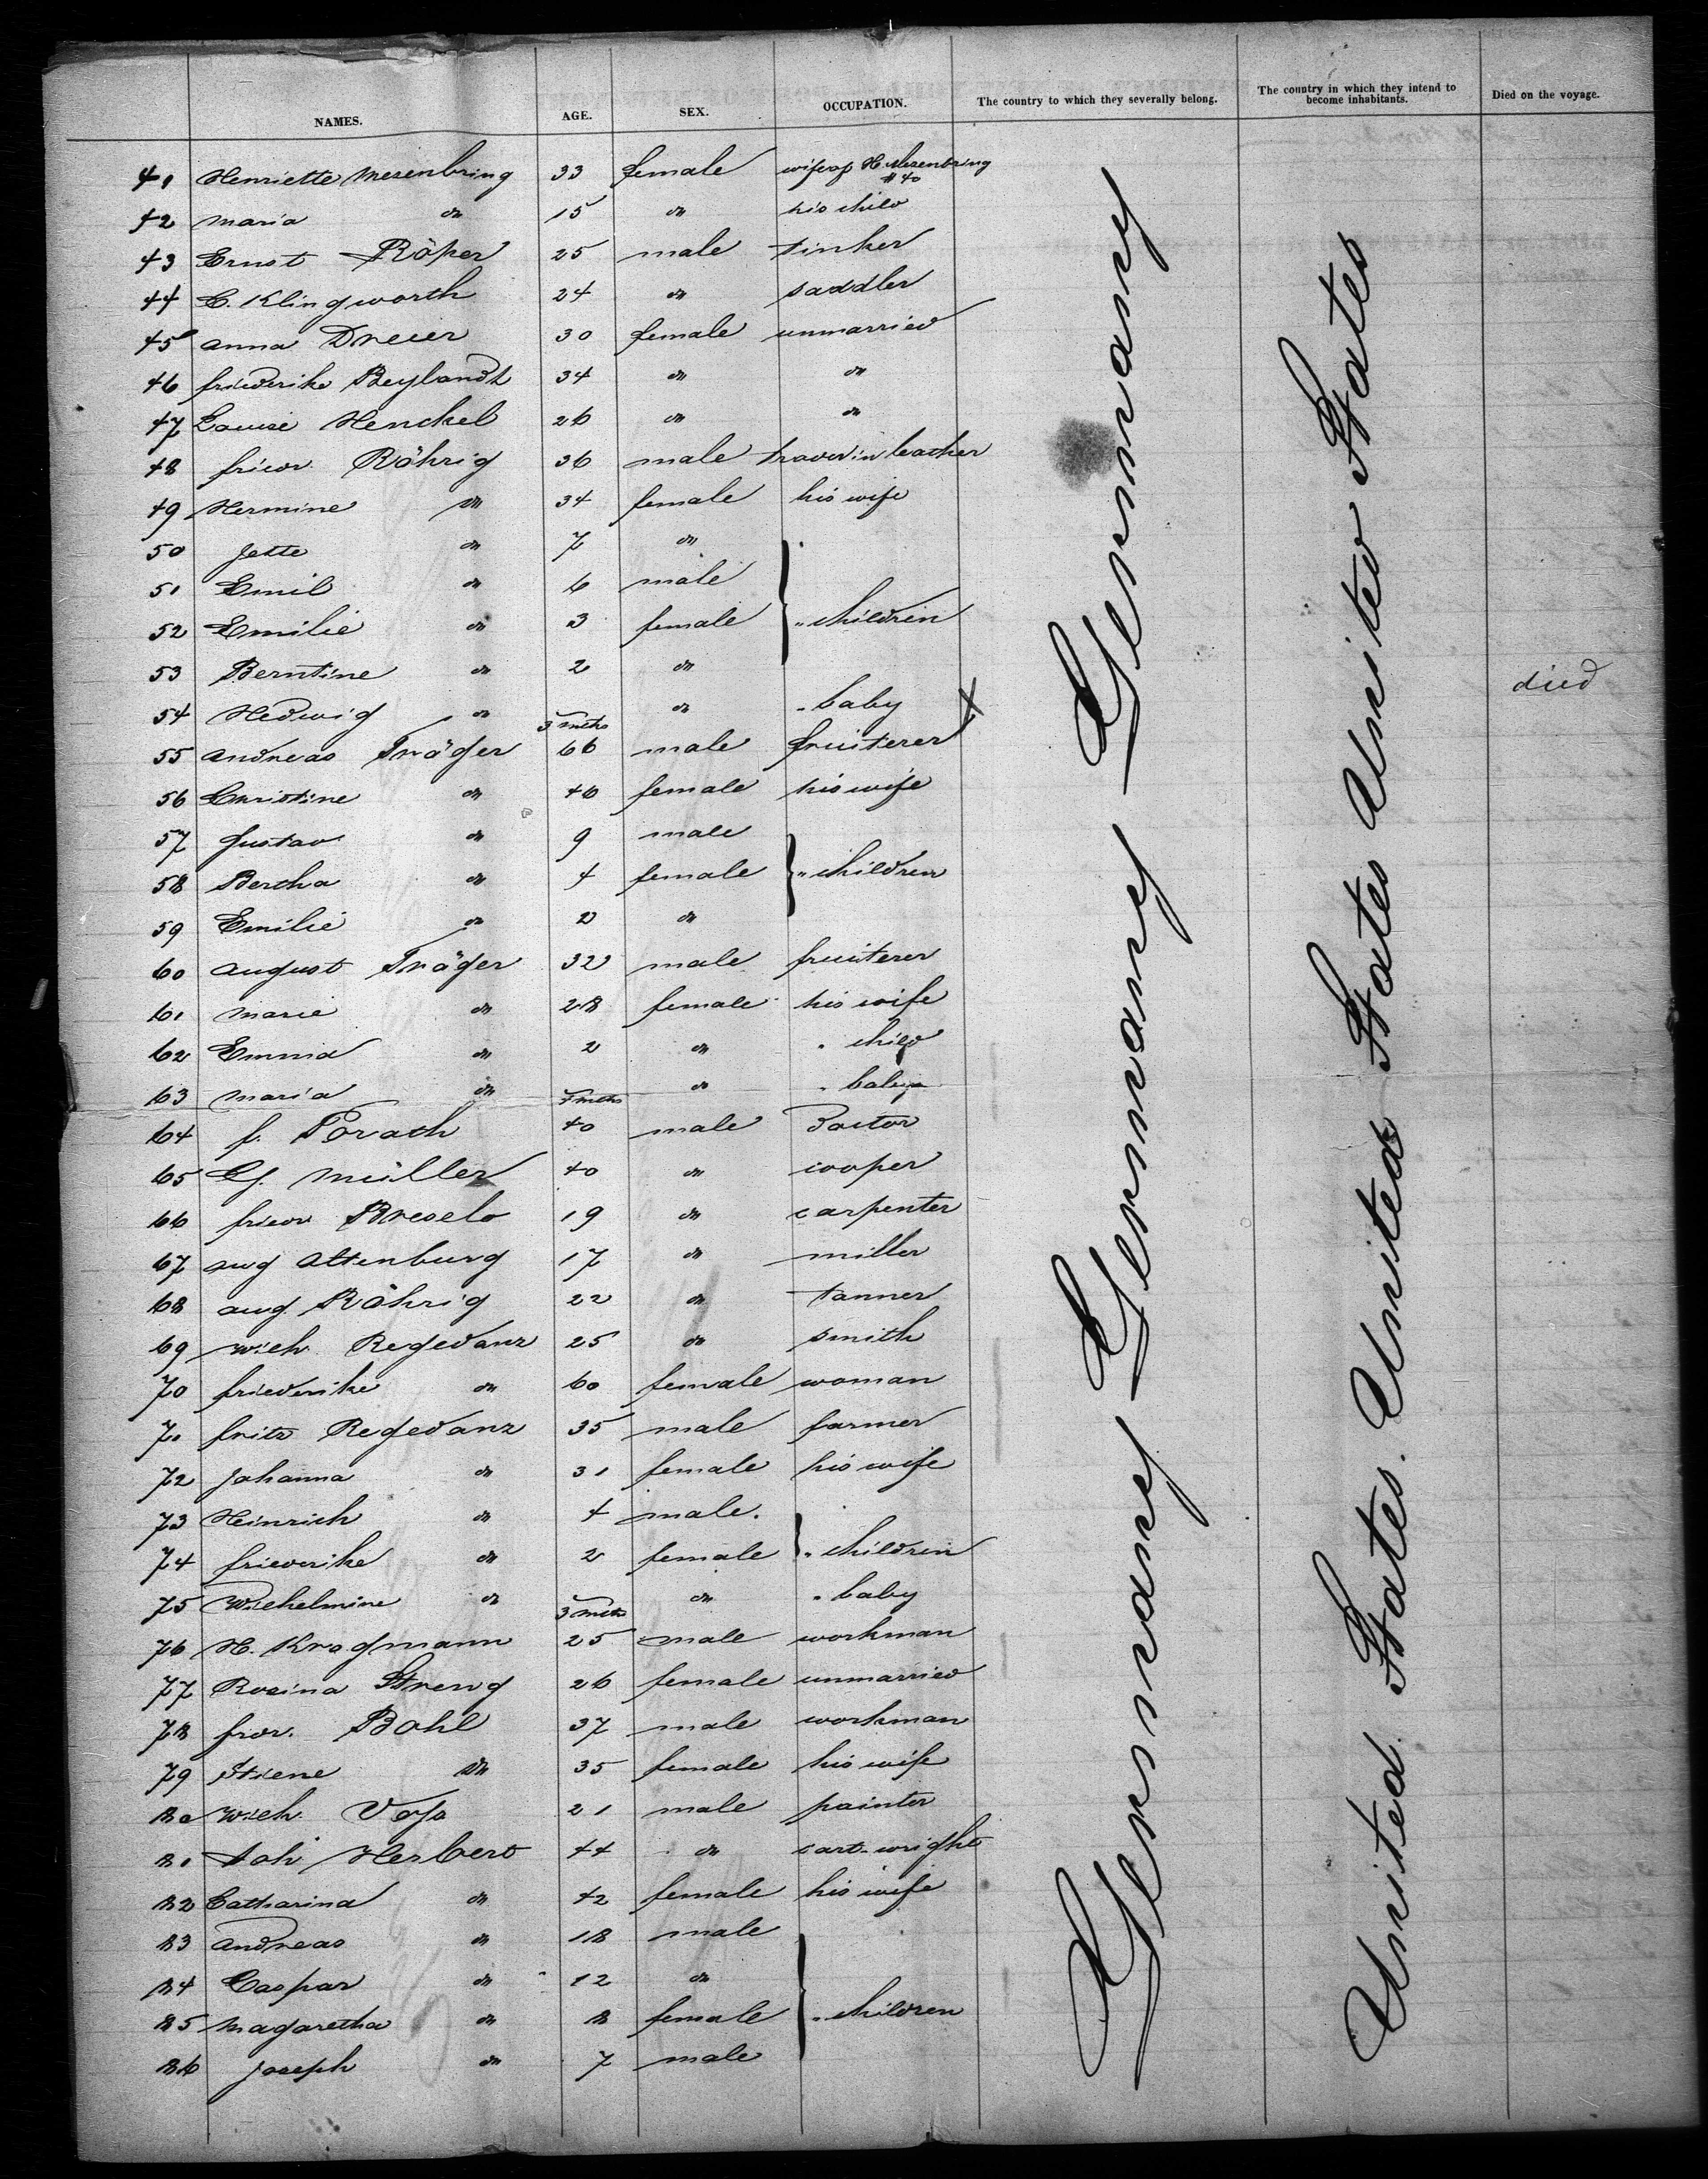 NAMES. AGE. SEX. OCCUPATION. The country to which they severally belong. The country in which they intend to become inhabitants. Died on the voyage.
41 Henriette Mesenbring 33 female wife of H. Mesenbring # 40
42 Maria do 15 do his child
43 Ernst Röper 25 male tinker
44 C. Klingworth 24 do saddler
45 Anna Dreier 30 female unmarried
46 Friederike Beylandt 34 do do
47 Louise Henckel 26 do do
48 Friedr. Röhrig 36 male trader in leather
49 Hermine do 34 female his wife
50 Jette do 7 do
51 Emil do 6 male
52 Emilie do 3 female " children
53 Berntine do 2 do
54 Hedwig do 3 mths do " baby died
55 Andreas Träger 66 male fruiterer
56 Christine do 40 female his wife
57 Gustav do 9 male
58 Bertha do 4 female " children
59 Emilie do 2 do
60 August Träger 32 male fruiterer
61 Marie do 28 female his wife
62 Emma do 2 do " child
63 Maria do 4 mths do " baby
64 F. Porath 40 male Pastor
65 Müller 40 do cooper
66 Friedr. 19 do carpenter
67 Aug Attenburg 17 do miller
68 Aug. Röhrig 22 do tanner
69 Wilh. Regedanz 25 do smith
70 Friederike do 60 female woman
71 Fritz Regedanz 35 male farmer
72 Johanna do 31 female his wife
73 Heinrich do 4 male.
74 Friederike do 2 female " children
75 Wilhelmine do 3 mths do " baby
76 H. Krogmann 25 male workman
77 Rosina Streng 26 female unmarried
78 Frdr. Bohl 37 male workman
79 Stiene do 35 female his wife
80 Wilh. Voss 21 male painter
81 Joh. Herbert 44 do cart-wright
82 Catharina do 42 female his wife
83 Andreas do 18 male
84 Caspar do 12 do
85 Magaretha do 8 female " children
86 Joseph do 7 male
Germany Germany Germany Germany
United States. United States United States